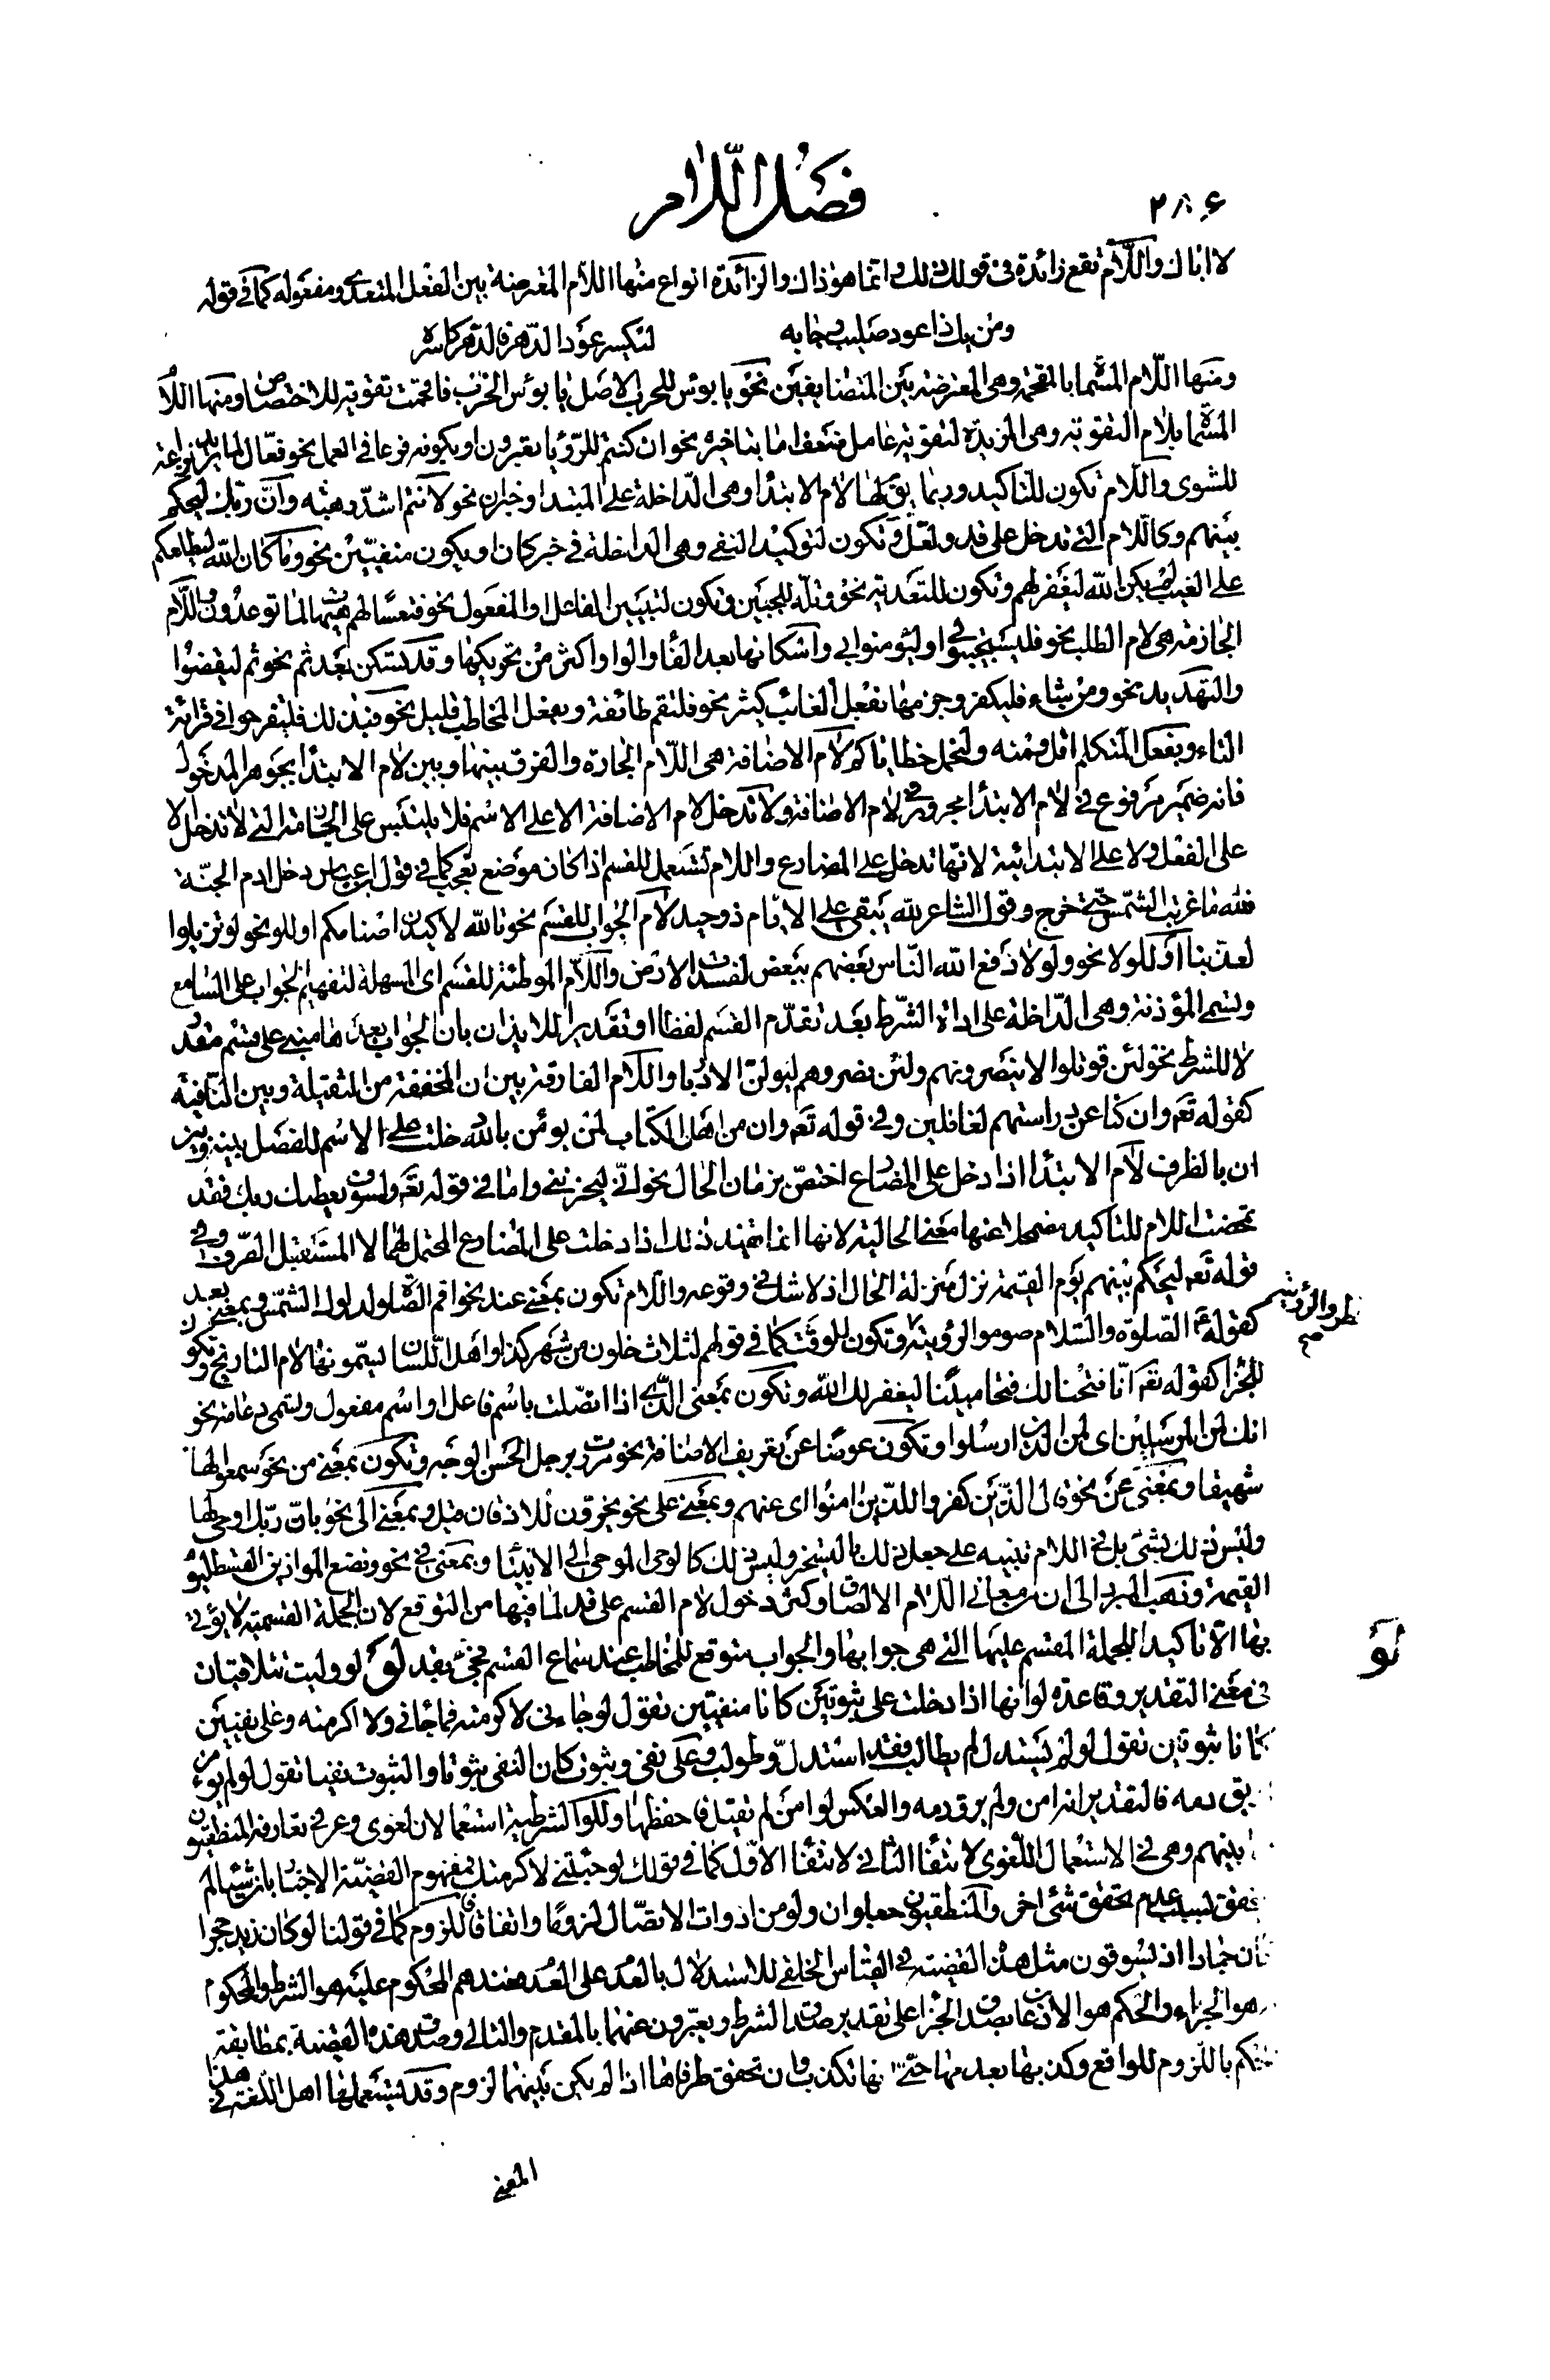 فصل اللّام
٢٨٦
لا ابا لك واللّام تقع زائدة فى قولك ذلك وانما هو ذاك والزائدة انواع منها اللام المعترضة بين الفعل المتعدى ومفعوله كما فى قوله
ومن يك ذا عود صليب رجا به ليكسر عود الدّهر فالدهر كاسره
ومنها اللّام المسماة بالمقحمة وهى المعترضة بين المتضايفين نحو يا بؤس للحرب الاصل يا بؤس الحرب فاقحمت تقوية للاختصاص ومنها اللام
المسماة بلام التقوية وهى المزيدة لتقوية عامل ضعف اما بتاخيره نحو ان كنتم للرؤيا تعبرون او بكونه فرعا فى العمل نحو فعّال لما يريد نزاعة
للشوى واللام تكون للتاكيد وربما يق لها لام الابتدا وهى الدّاخلة على المبتدا وخبران نحو لانتم اشدّ رهبة وانّ ربّك ليحكم
بينهم وكاللام التى تدخل على قد ولعلّ وتكون لتوكيد النفى وهى الداخلة فى خبر كان او يكون منفيين نحو وما كان الله ليطلعكم
على الغيب لم يكن الله ليغفر لهم وتكون للتعدية نحو وتلّه للجبين وتكون لتبيين الفاعل او المفعول نحو فتعسا لهم هيهات لما توعدون واللام
الجازمة هى لام الطلب نحو فليستجيبوا لى وليؤمنوا بى واسكانها بعد الفا والواو اكثر من تحريكها وقد تسكن بعد ثم نحو ثم ليقضوا
والتهديد نحو ومن شاء فليكفر وجزمها بفعل الغائب كثير نحو فلتقم طائفة وبفعل المخاطب قليل نحو فبذلك فلتفرحوا فى قرائة
التاء وبفعل المتكلم اقل ومنه ولنحمل خطاياكم لام الاضافة هى اللّام الجارة والفرق بينها وبين لام الابتدا بجوهر المدخول
فانه ضمير مرفوع فى لام الابتدا مجرور فى لام الاضافة ولا تدخل لام الاضافة الا على الاسم فلا يلتبس على الجازمة التى لا تدخل الا
على الفعل ولا على الابتدائية لانها تدخل على المضارع واللام تستعمل للقسم اذا كان موضع تعجب كما فى قول ابن عباس دخل ادم الجنّة
فلله ما غربت الشمس حتى خرج وقول الشاعر لله يبقى على الايام ذو حيد لام الجواب للقسم نحو تالله لاكيدن اصنامكم او للو نحو لو تزيلوا
لعذبنا او للولا نحو ولولا دفع الله النّاس بعضهم ببعض لفسدت الارض واللام الموطئة للقسم اى المسهلة لتفهيم الجواب على السامع
وتسمى المؤذنة وهى الدّاخلة على اداة الشّرط بعد تقدّم القسم لفظا او تقديرا للايذان بان الجواب بعدها مبنى على قسم مقدر
لا للشرط نحو لئن قوتلوا لا ينصرونهم ولئن نصروهم ليولن الادبار واللام الفارقة بين ان المخففة من الثقيلة وبين النّافية
كقوله تعه وان كنا عن دراستهم لغافلين وفى قوله تعه وان من اهل الكتاب لمن يؤمن بالله دخلت على الاسم للفصل بينه وبين
ان بالظرف لام الابتدا اذا دخل على المضارع اختصّ بزمان الحال نحو انّى ليحزننى واما فى قوله تعه ولسوف يعطيك ربك فقد
تمحضت اللام للتاكيد مضمحلا عنها معنى الحالية لانها انما تفيد ذلك اذا دخلت على المضارع المحتمل لهما لا المستقبل الصرف وفى
قوله تعه ليحكم بينهم يوم القيمة نزل منزلة الحال اذ لا شك فى وقوعه واللام تكون بمعنى عند نحو اقم الصّلوة لدلوك الشمس وبمعنى بعد
كقوله عم الصلوة والسّلام صوموا لرؤيته وتكون للوقت كما فى قولهم لثلاث خلون من شهر كذا واهل اللّسان يسمونها لام التاريخ وتكون
للجزا كقوله تعه انّا فتحنا لك فتحا مبينا ليغفر لك الله وتكون بمعنى الذى اذا اتصلت باسم فاعل او اسم مفعول وتسمى دعامة نحو
انك لمن المرسلين اى لمن الذين ارسلوا وتكون عوضا عن تعريف الاضافة نحو مررت برجل الحسن الوجه وتكون بمعنى من نحو سمعوا لها
شهيقا وبمعنى عن نحو قال الذين كفروا للذين امنوا اى عنهم وبمعنى على نحو يخرون للاذقان قيل وبمعنى الى نحو بانّ ربّك اوحى لها
وليس ذلك بشئ بل فى اللام تنبيه على جعل ذلك بالتسخير وليس ذلك كالوحى الموحى الى الانبيا وبمعنى فى نحو ونضع الموازين القسط ليوم
القيمة وذهب المبرد الى ان من معانى اللام الالصاق وكثر دخول لام القسم على قد لما فيها من التوقع لان الجملة القسمية لا يؤتى
بها الّا تاكيدا للجملة المقسم عليها التى هى جوابها والجواب متوقع للمخاطب عند سماع القسم فجئ بقد لو لو وليت تتلاقيان
فى معنى التقدير وقاعدة لو انها اذا دخلت على ثبوتين كانا منفيين تقول لو جاءنى لاكرمته فما جائنى ولا اكرمته وعلى نفيين
كانا ثبوتين تقول لو لم يستدل لم يطالب فقد استدل وطولب وعلى نفى وثبوت كان النفى ثبوتا والثبوت نفيا تقول لو لم يؤمن
يق دمه فالتقدير انه امن ولم يرق دمه والعكس لو امن لم يقتل فاحفظها وللو الشرطية استعمالان لغوى وعرفى تعارفه المنطقيون
بينهم وهى فى الاستعمال اللّغوى لانتفا الثانى لانتفا الاوّل كما فى قولك لو جئتنى لاكرمتك فمفهوم القضية الاخبار بان شيئا لم
يتحقق لسبب عدم تحقق شئ اخر والمنطقيون جعلوا ان ولو من ادوات الاتصال لزوميا واتفاقيا للزوم كما فى قولنا لو كان زيد حجرا
كان جمادا اذ يسوقون مثل هذه القضية فى القياس الخلفى للاستدلال بالعدم على العدم فعندهم المحكوم عليه هو الشرط والمحكوم
هو الجزاء والحكم هو الاذعان بصدق الجزا على تقدير صدق الشرط ويعبّرون عنهما بالمقدم والتالى وصدق هذه القضية بمطابقة
الحكم باللّزوم للواقع وكذبها بعدمها حتّى انها تكذب وان تحقق طرفاها اذا لم يكن بينهما لزوم وقد تستعملها اهل اللّغة فى هذا
لو
المعنى